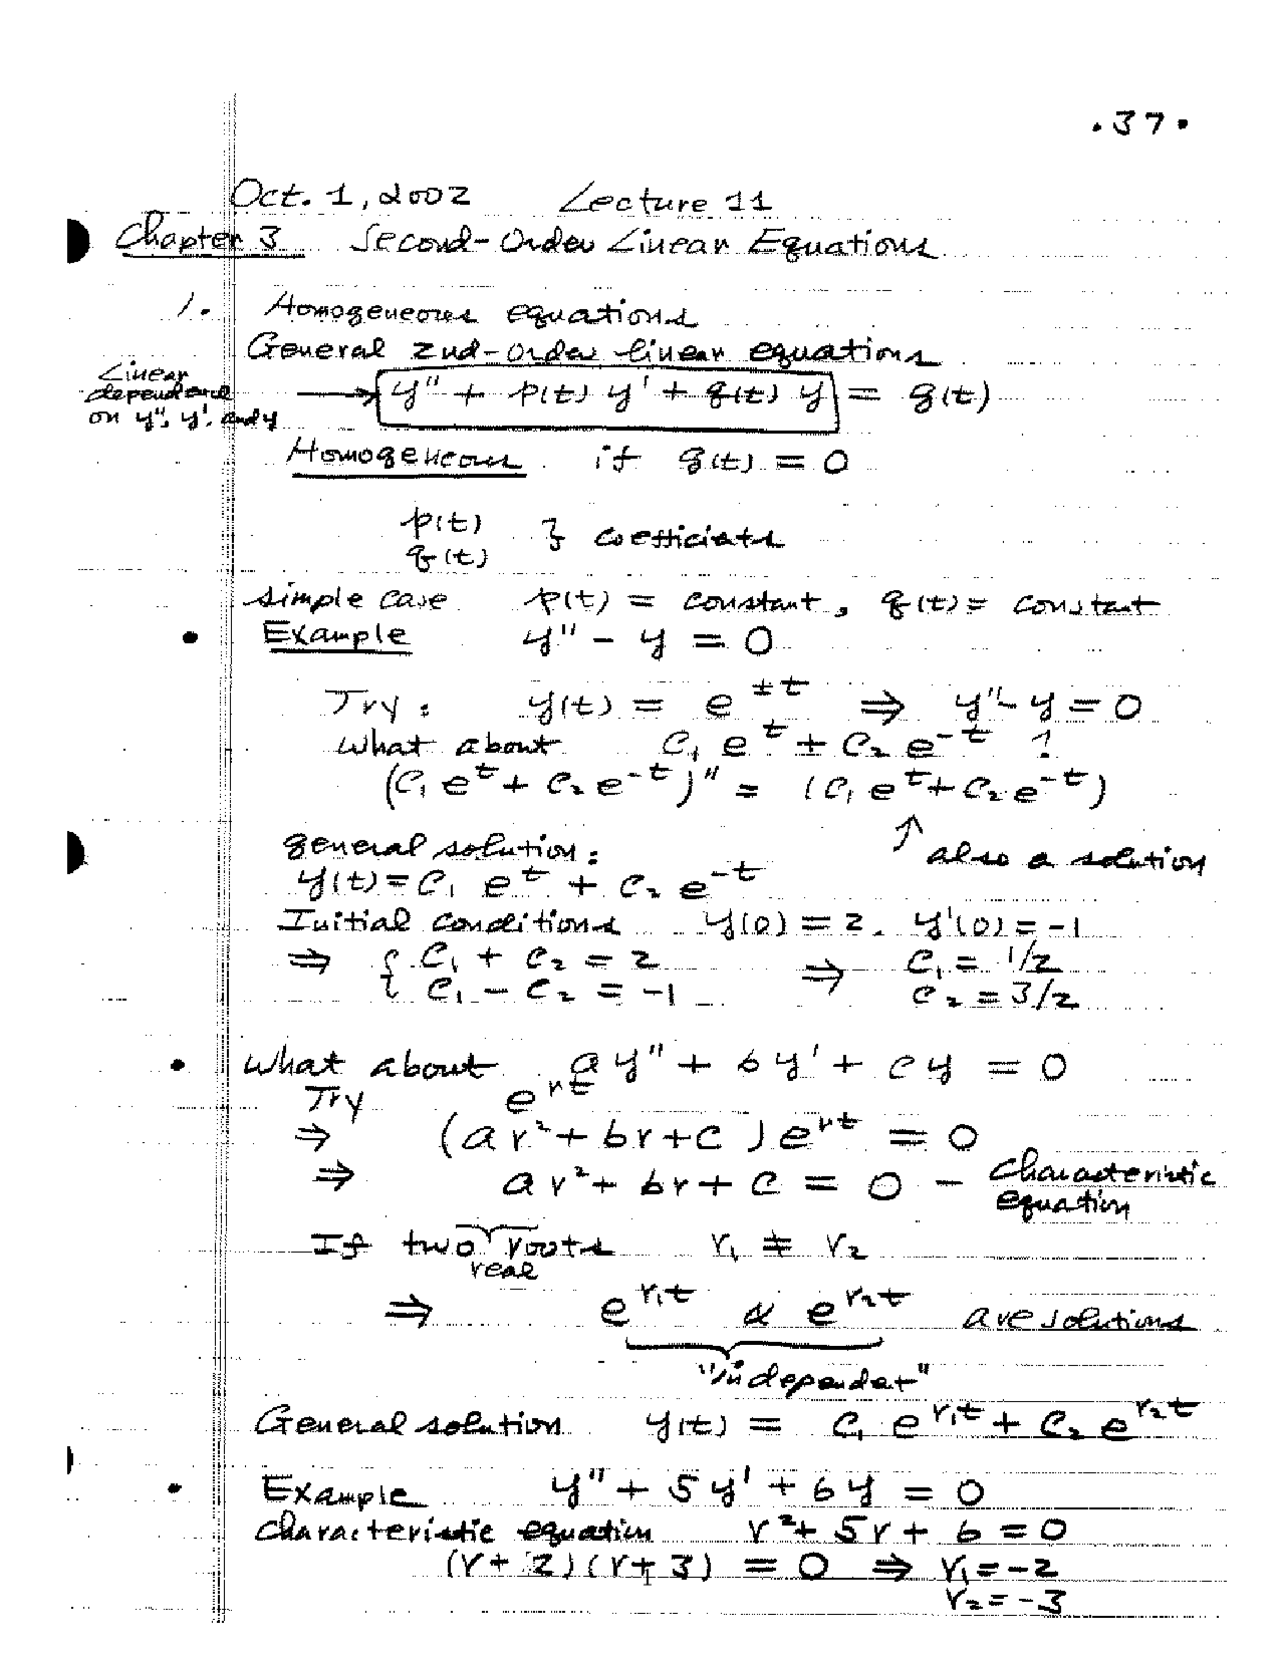 .37.
Oct. 1, 2002 Lecture 11
Chapter 3 Second-Order Linear Equations
1. Homogeneous equations
General 2nd-order linear equations
Linear dependence on y'', y', and y → y'' + p(t) y' + q(t) y = g(t)
Homogeneous if g(t) = 0
p(t)
q(t) } coefficiats
simple case p(t) = constant, q(t) = constant
• Example y'' - y = 0
Try: y(t) = e^{±t} ⇒ y'' - y = 0
What about C₁ e^t + C₂ e^{-t} ?
(C₁ e^t + C₂ e^{-t})'' = (C₁ e^t + C₂ e^{-t})
↑ also a solution
general solution:
y(t) = C₁ e^t + C₂ e^{-t}
Initial conditions y(0) = 2. y'(0) = -1
⇒ { C₁ + C₂ = 2 ⇒ C₁ = 1/2
{ C₁ - C₂ = -1 C₂ = 3/2
• What about ay'' + by' + cy = 0
Try e^{rt}
⇒ (ar² + br + c) e^{rt} = 0
⇒ ar² + br + c = 0 - characteristic equation
If two roots r₁ ≠ r₂
real
⇒ e^{r₁t} & e^{r₂t} are solutions
"independet"
General solution y(t) = C₁ e^{r₁t} + C₂ e^{r₂t}
• Example y'' + 5y' + 6y = 0
characteristic equation r² + 5r + 6 = 0
(r + 2)(r + 3) = 0 ⇒ r₁ = -2
r₂ = -3